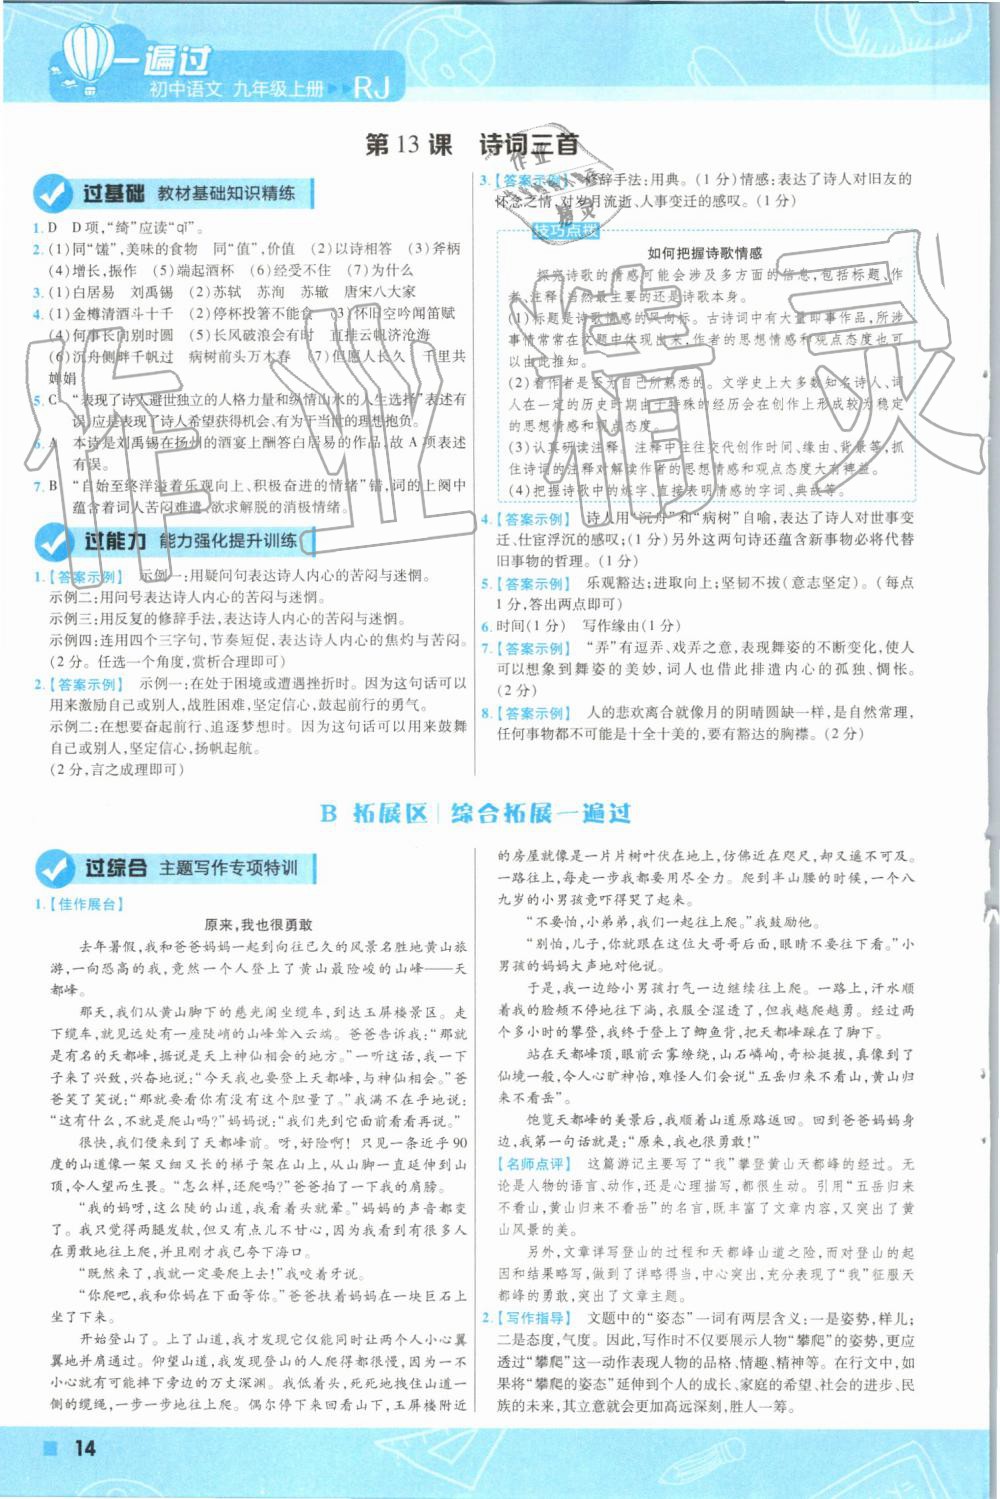 一遍过
初中语文 九年级上册 RJ
第13课 诗词三首
过基础 教材基础知识精练
1. D D项,“绮”应读“qǐ”。
2. (1)同“馐”,美味的食物 同“值”,价值 (2)以诗相答 (3)斧柄
(4)增长,振作 (5)端起酒杯 (6)经受不住 (7)拂晓
3. (1)白居易 刘禹锡 (2)苏轼 苏洵 苏辙 唐宋八大家
4. (1)金樽清酒斗十千 (2)停杯投箸不能食 (3)怀旧空吟闻笛赋
(4)何事长向别时圆 (5)长风破浪会有时 直挂云帆济沧海
(6)沉舟侧畔千帆过 病树前头万木春 (7)但愿人长久 千里共
婵娟
5. C “表现了诗人避世独立的人格力量和纵情山水的人生选择”表述有
误,应是表现了诗人希望获得机会,有为于当世的理想抱负。
6. A 本诗是刘禹锡在扬州的酒宴上酬答白居易的作品,故A项表述
有误。
7. B “自始至终洋溢着乐观向上、积极奋进的情绪”错,词的上阕中
蕴含着词人苦闷难遣、欲求解脱的消极情绪。
过能力 能力强化提升训练
1.【答案示例】 示例一:用疑问句表达诗人内心的苦闷与迷惘。
示例二:用问号表达诗人内心的苦闷与迷惘。
示例三:用反复的修辞手法,表达诗人内心的苦闷与迷惘。
示例四:连用四个三字句,节奏短促,表达诗人内心的焦灼与苦闷。
(2分。任选一个角度,赏析合理即可)
2.【答案示例】 示例一:在处于困境或遭遇挫折时。因为这句话可以
用来激励自己或别人,战胜困难,坚定信心,鼓起前行的勇气。
示例二:在想要奋起前行、追逐梦想时。因为这句话可以用来鼓舞
自己或别人,坚定信心,扬帆起航。
(2分,言之成理即可)
3.【答案示例】 修辞手法:用典。(1分)情感:表达了诗人对旧友的
怀念之情,对岁月流逝、人事变迁的感叹。(1分)
技巧点拨
如何把握诗歌情感
探究诗歌的情感可能会涉及多方面的信息,包括标题、作
者、注释,当然最主要的还是诗歌本身。
(1)标题是诗歌情感的风向标。古诗词中有大量即事作品,所涉
事情常常在文题中体现出来,作者的思想情感和观点态度也可
以由此推知。
(2)看作者是否为自己所熟悉的。文学史上大多数知名诗人、词
人在一定的历史时期由于特殊的经历会在创作上形成较为稳定
的思想情感和观点态度。
(3)认真研读注释。注释中往往交代创作时间、缘由、背景等,抓
住诗词的注释对解读作者的思想情感和观点态度大有裨益。
(4)把握诗歌中的炼字、直接表明情感的字词、典故等。
4.【答案示例】 诗人用“沉舟”和“病树”自喻,表达了诗人对世事变
迁、仕宦浮沉的感叹;(1分)另外这两句诗还蕴含新事物必将代替
旧事物的哲理。(1分)
5.【答案示例】 乐观豁达;进取向上;坚韧不拔(意志坚定)。(每点
1分,答出两点即可)
6. 时间(1分) 写作缘由(1分)
7.【答案示例】 “弄”有逗弄、戏弄之意,表现舞姿的不断变化,使人
可以想象到舞姿的美妙,词人也借此排遣内心的孤独、惆怅。
(2分)
8.【答案示例】 人的悲欢离合就像月的阴晴圆缺一样,是自然常理,
任何事物都不可能是十全十美的,要有豁达的胸襟。(2分)
B 拓展区 综合拓展一遍过
过综合 主题写作专项特训
1.【佳作展台】
原来,我也很勇敢
去年暑假,我和爸爸妈妈一起到向往已久的风景名胜地黄山旅
游,一向恐高的我,竟然一个人登上了黄山最险峻的山峰——天
都峰。
那天,我们从黄山脚下的慈光阁坐缆车,到达玉屏楼景区。走
下缆车,就见远处有一座陡峭的山峰耸入云端。爸爸告诉我:“那就
是有名的天都峰,据说是天上神仙相会的地方。”一听这话,我一下
子来了兴致,兴奋地说:“今天我也要登上天都峰,与神仙相会。”爸
爸笑了笑说:“那就要看你有没有这个胆量了。”我满不在乎地说:
“这有什么,不就是爬山吗?”妈妈说:“我们先到它面前看看再说。”
很快,我们便来到了天都峰前。呀,好险啊！只见一条近乎90
度的山道像一架又细又长的梯子架在山前,几乎是垂直延伸到山
顶,让人望而生畏。“怎么样,还爬吗?”爸爸拍了拍我的肩膀。
“我的妈呀,这么陡的山道,我看着头就晕。”妈妈的声音都变
了。我只觉得两腿发软,但又有点儿不甘心,因为我不止一次表示
要勇敢地往上爬,并且刚才已夸下海口。
“既然来了,我就一定要爬上去!”我咬着牙说。
“你爬吧,我和你妈在下面等你。”爸爸扶着妈妈在一块巨石上
坐了下来。
开始登山了。上了山道,我发现它仅能同时让两个人小心翼
翼地并肩通过。仰望山道,我发现登山的人寥寥无几,因为一不
小心就有可能摔下旁边的万丈深渊。我低着头,死死地拽住山道一
侧的缆绳,一步一步地往上爬。偶尔停下来朝下望,玉屏楼附近
的房屋就像是一片片树叶伏在地上,仿佛近在咫尺,却又遥不可及。
一路往上,每走一步都要用尽全力。爬到半山腰的时候,一个八
九岁的小男孩竟吓得哭了起来。
“不要怕,小弟弟,我们一起往上爬。”我鼓励他。
“别怕,儿子,你就跟在这位大哥哥后面,眼睛不要往下看。”小
男孩的妈妈大声地对他说。
于是,我一边给小男孩打气一边继续往上爬。一路上,汗水顺
着我的脸颊不停地往下淌,衣服全湿透了,但我越爬越勇。经过两
个多小时的攀登,我终于登上了鲫鱼背,把天都峰踩在了脚下。
站在天都峰顶,眼前云雾缭绕,山石嶙峋,奇松挺拔,真像到了
仙境一般,令人心旷神怡,难怪人们会说“五岳归来不看山,黄山归
来不看岳”。
饱览天都峰的美景后,我顺着山道原路返回。回到爸爸妈妈身
边,我第一句话就是:“原来,我也很勇敢!”
【名师点评】 这篇游记主要写了“我”攀登黄山天都峰的经过。无
论是人物的语言、动作,还是心理描写,都很生动。引用“五岳归来
不看山,黄山归来不看岳”的名言,既丰富了文章内容,又突出了黄
山风景的美。
另外,文章详写登山的过程和天都峰山道之险,而对登山的起
因和结果略写,做到了详略得当,中心突出,充分表现了“我”征服天
都峰的勇敢,突出了文章主题。
2.【写作指导】 文题中的“姿态”一词有两层含义:一是姿势,样儿;
二是态度,气度。因此,写作时不仅要展示人物“攀爬”的姿势,更应
透过“攀爬”这一动作表现人物的品格、情趣、精神等。在行文中,如
果将“攀爬的姿态”延伸到个人的成长、家庭的希望、社会的进步、民
族的未来,其立意就会更加高远深刻,胜人一筹。
14
作业精灵